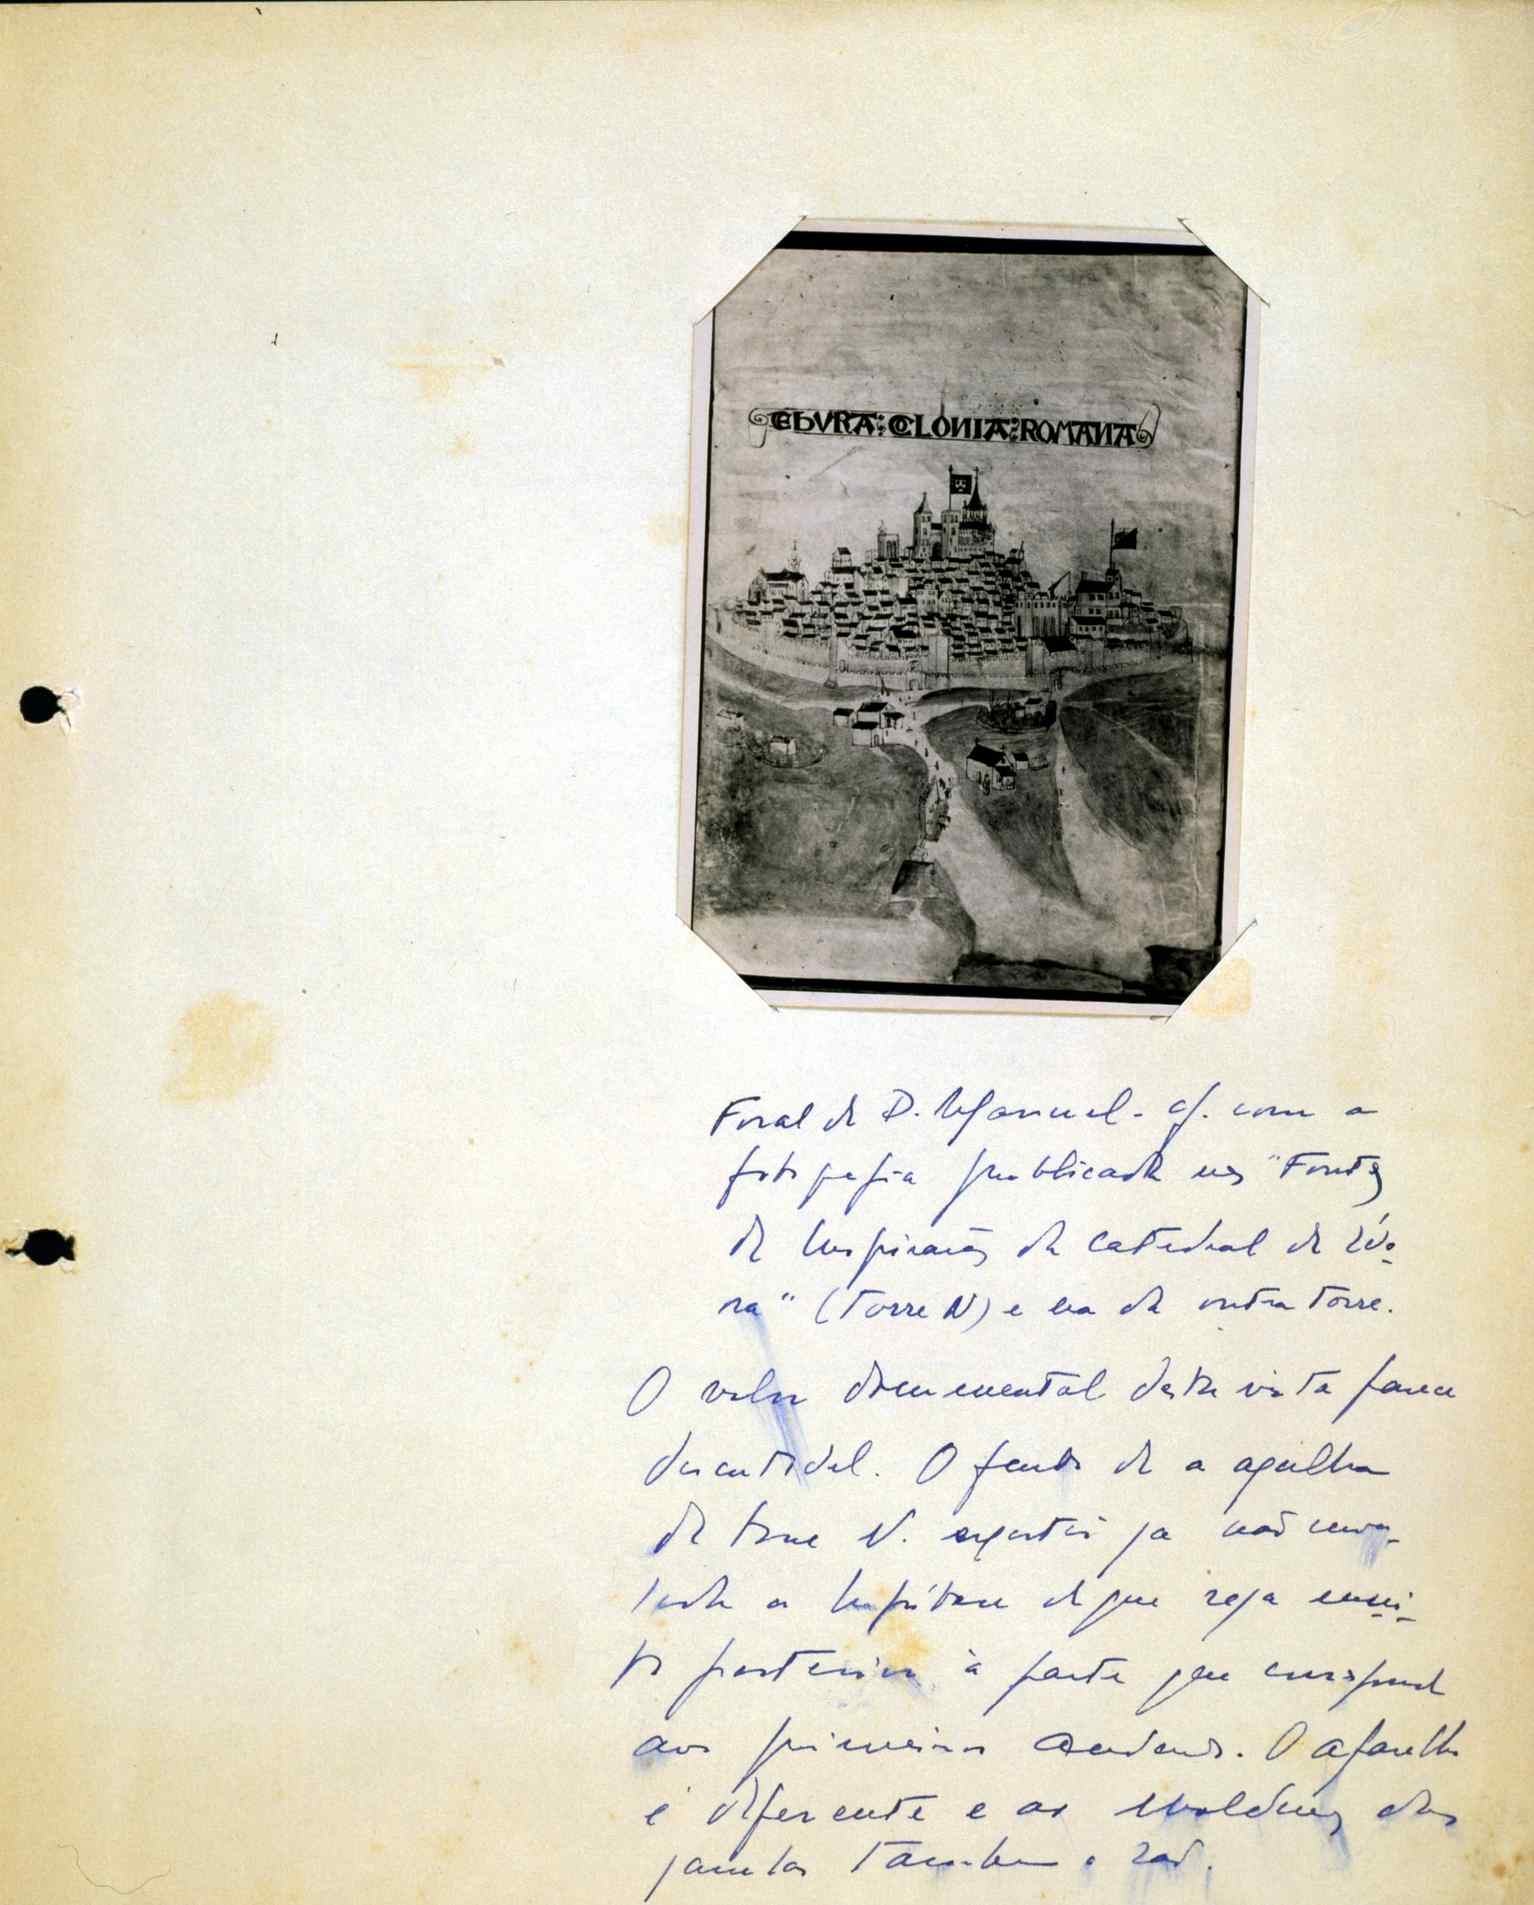 EBVRA : COLONIA : ROMANA
Foral de D. Manuel - cf. com a
fotografia publicada nas "Fontes
de Inspiração da Catedral de Évo-
ra" (Torre N) e na da outra torre.
O valor documental desta vista parece
discutivel. O facto de a agulha
da torre N. existir ja não inva-
lida a hipótese de que seja mui-
to posterior à parte que corresponde
aos primeiros andares. O aparelho
é diferente e as molduras das
janelas tambem o são.